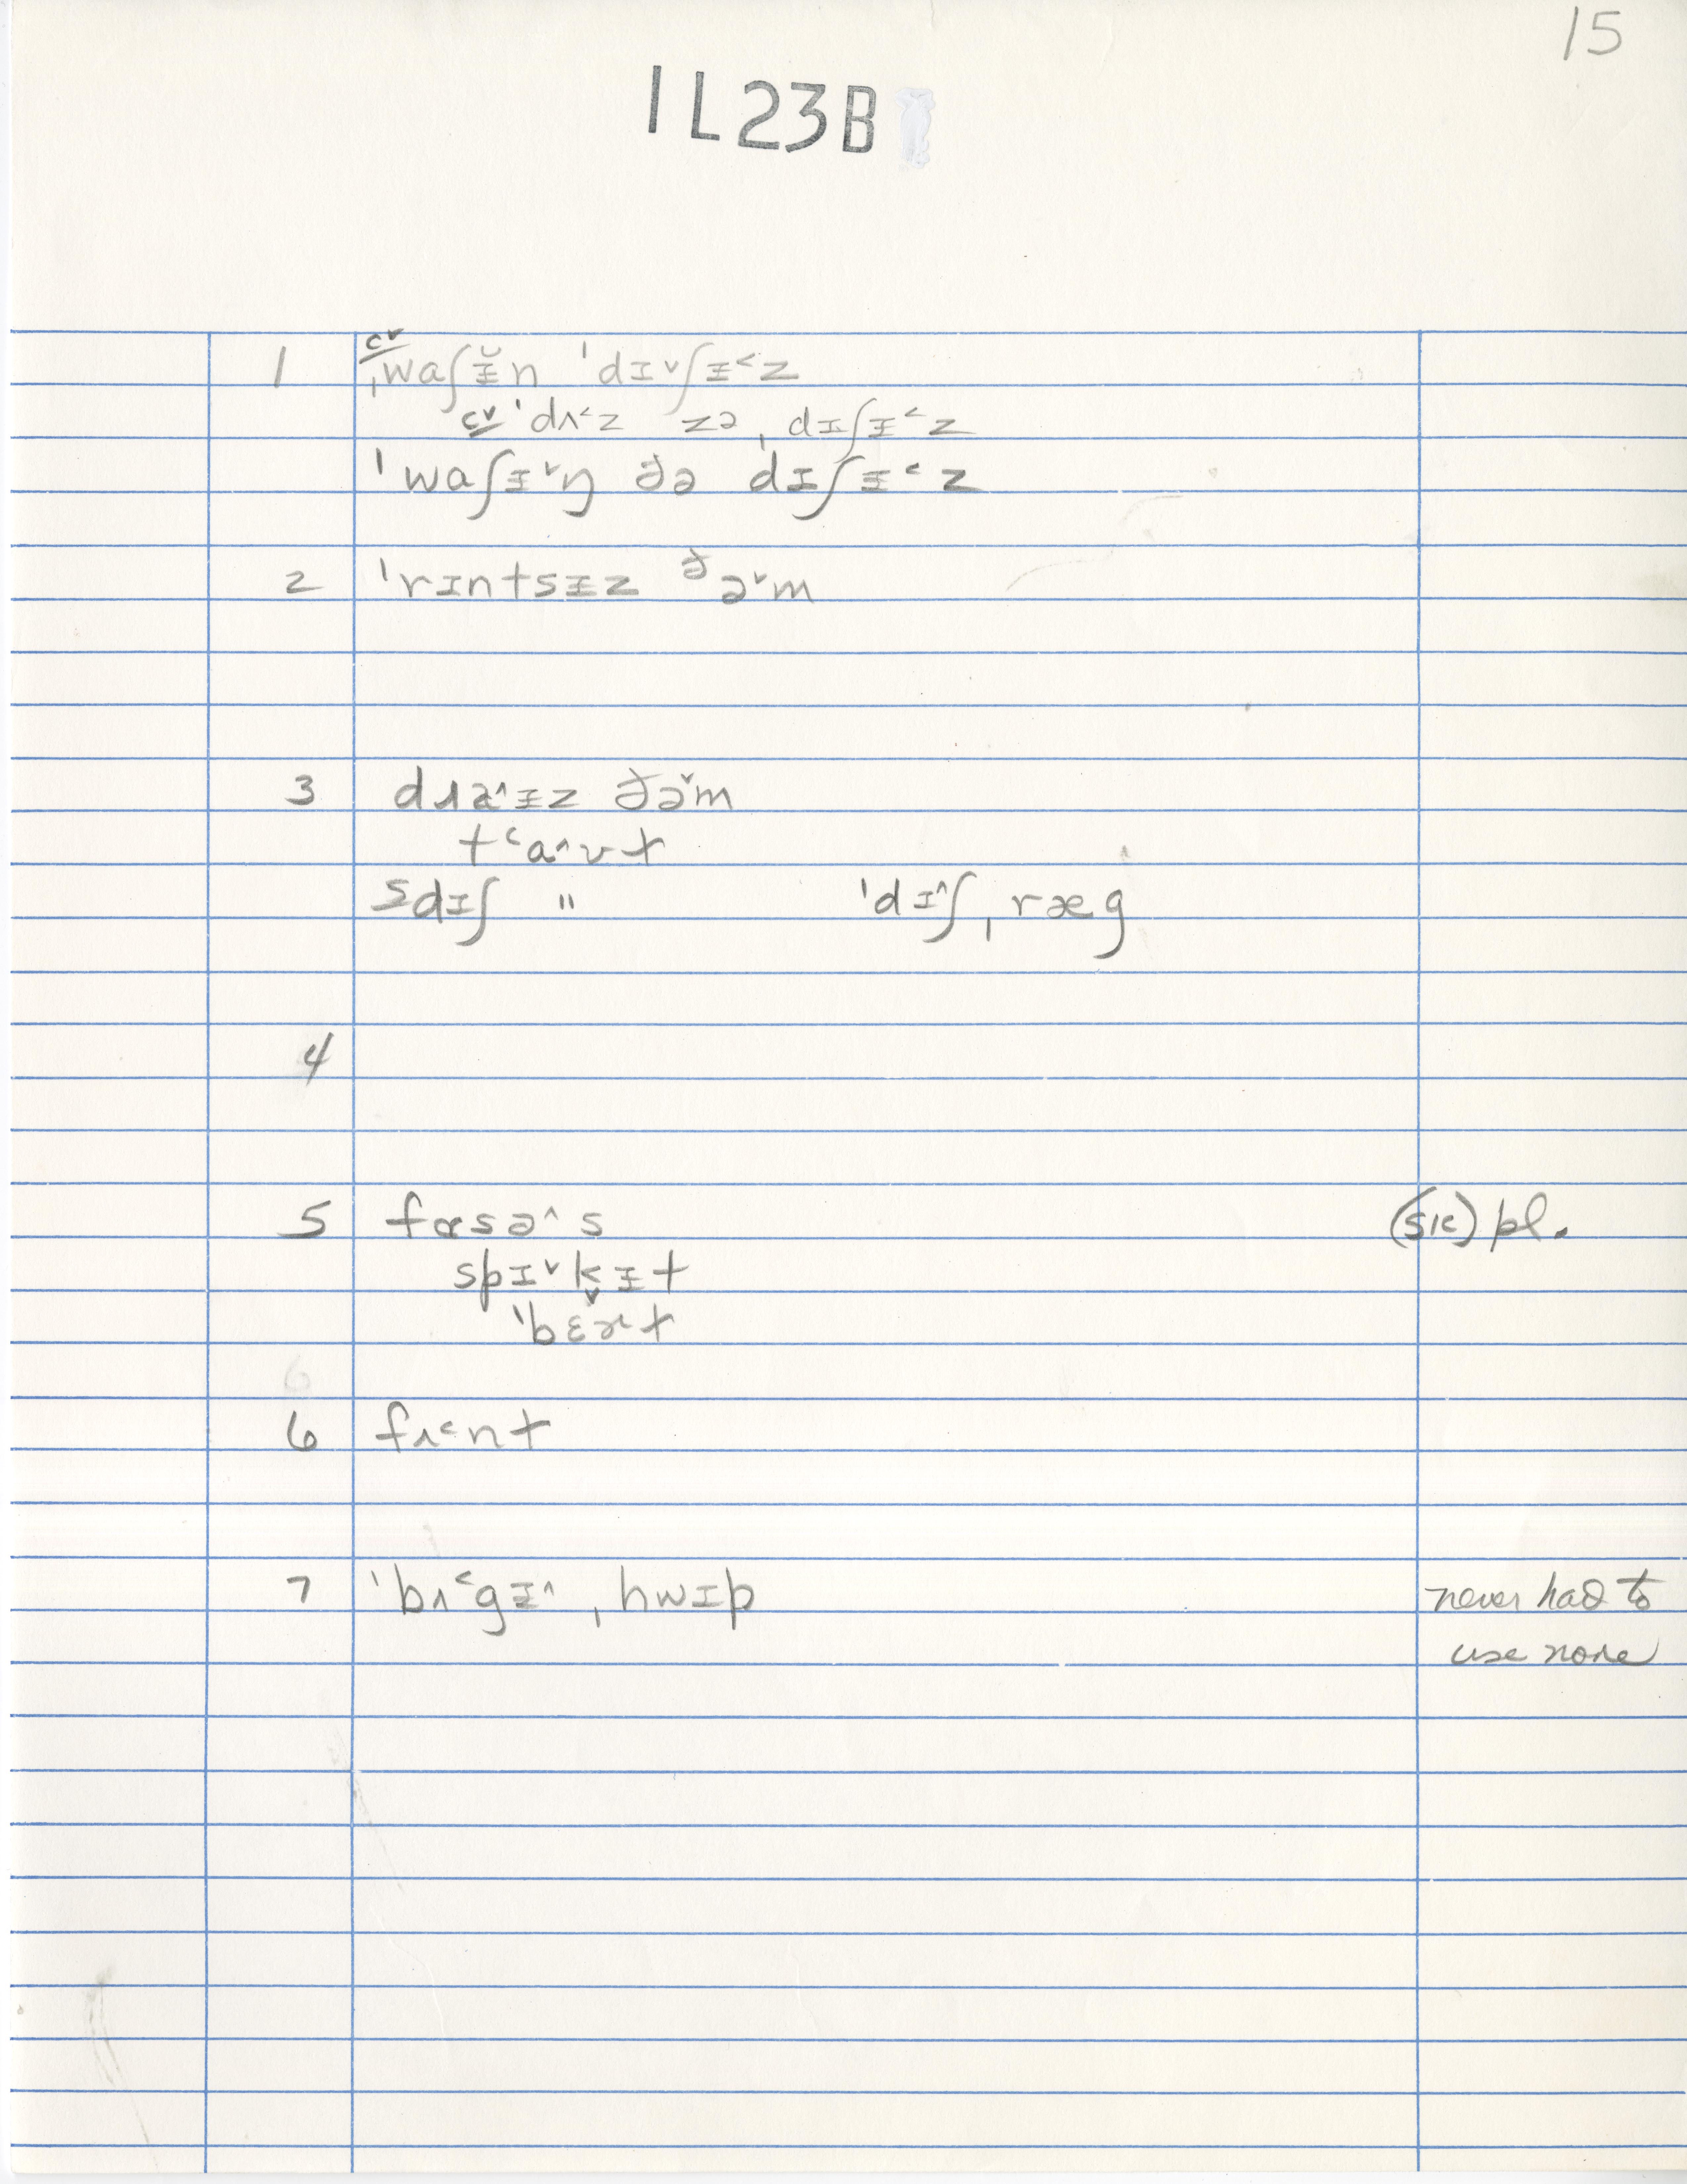 15
1L23B
1 cv ˌwaʃɨ̆n ˈdɪ˅ʃɨ˂z
cv ˈdʌ˂z zə ˌdɪʃɨ˂z
ˈwaʃɨ˅ŋ ðə dɪʃɨ˂z
2 ˈrɪntsɨz ðə˅m
3 drɑ˄ɨz ðə˅m
t˂a˄ʊt
sdɪʃ " ˈdɪ˄ʃˌræg
4
5 fɑsə˄s (sic) pl.
spɪ˅kɨt
ˈbɛ˅rt
6 fʌ˂nt
7 ˈbʌ˂gɪ˄ ˌhwɪp never had to
use none